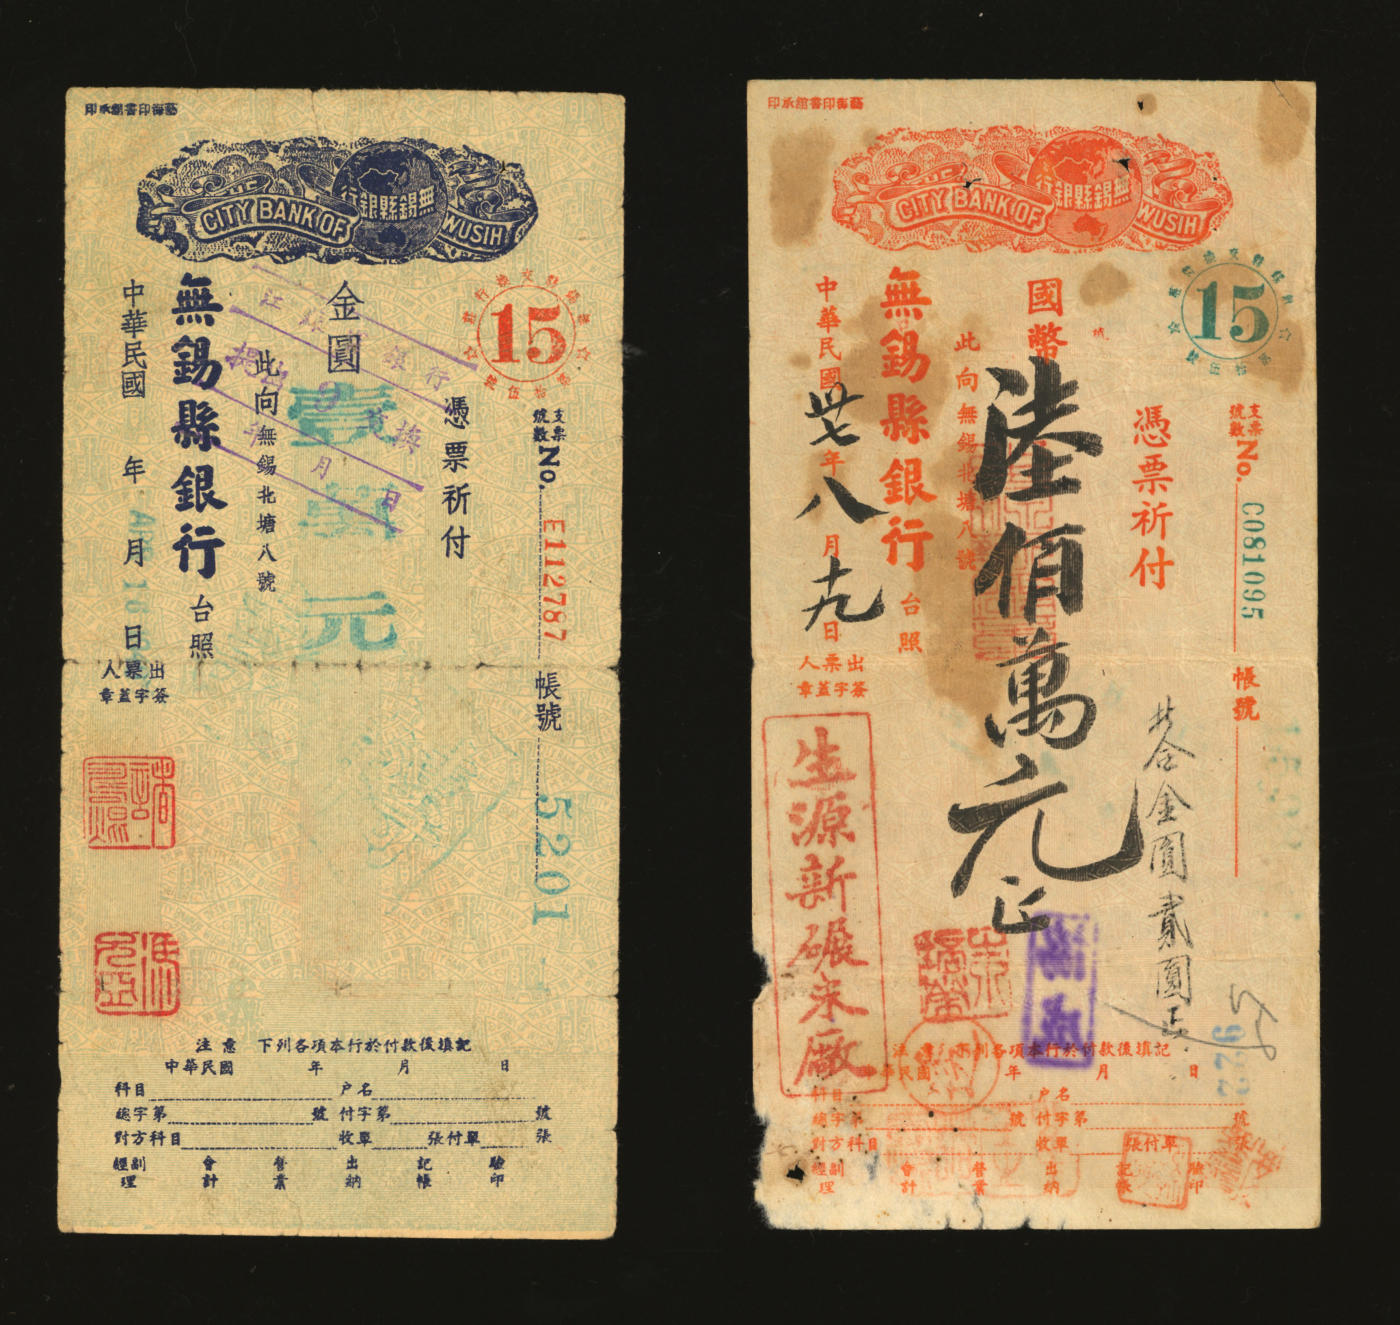 印承館書印海藝
行銀縣錫無
CITY BANK OF WUSIH
15
支票號數 No. E112787
帳號 5201
憑票祈付
金圓
壹萬元
此向無錫北塘八號
無錫縣銀行 台照
中華民國 年 月 日
出票人
簽字蓋章
注意 下列各項本行於付款後填記
中華民國 年 月 日
科目 戶名
總字第 號 付字第 號
對方科目 收單 張付單 張
經副理 會計 營業 出納 記帳 驗印
印承館書印海藝
行銀縣錫無
CITY BANK OF WUSIH
15
支票號數 No. C081095
帳號
憑票祈付
國幣
陸佰萬元正
共合金圓貳圓正
此向無錫北塘八號
無錫縣銀行 台照
中華民國卅七年八月十九日
出票人
簽字蓋章
生源新碾米廠
922
注意 下列各項本行於付款後填記
華民國 年 月 日
科目 戶名
總字第 號 付字第 號
對方科目 收單 張付單 張
經副理 會計 營業 出納 記帳 驗印